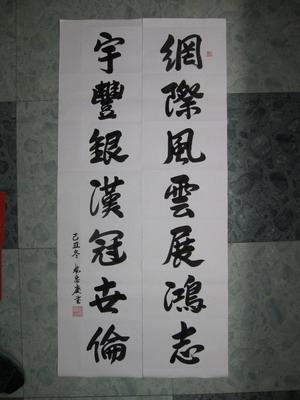 網際風雲展鴻志
宇豐銀漢冠世倫
己丑冬